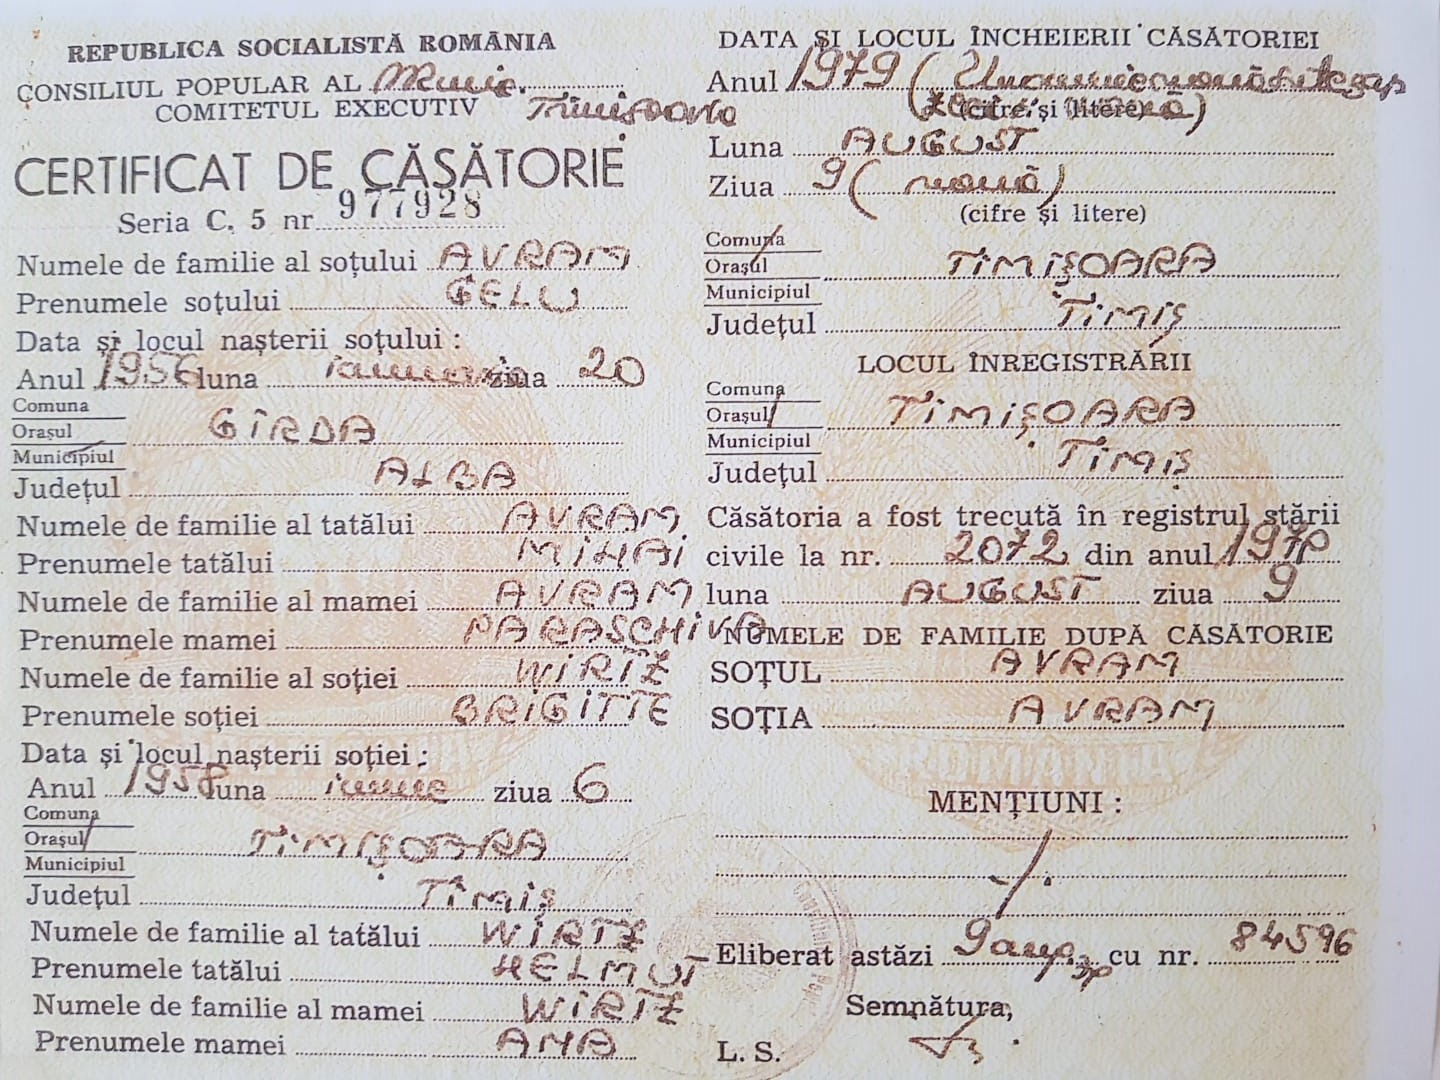 REPUBLICA SOCIALISTĂ ROMÂNIA
CONSILIUL POPULAR AL Munic.
COMITETUL EXECUTIV Timisoara
CERTIFICAT DE CĂSĂTORIE
Seria C. 5 nr. 977928
Numele de familie al soțului AVRAM
Prenumele soțului GELU
Data și locul nașterii soțului :
Anul 1956 luna ianuarie ziua 20
Comuna
Orașul GÎRDA
Municipiul
Județul ALBA
Numele de familie al tatălui AVRAM
Prenumele tatălui MIHAI
Numele de familie al mamei AVRAM
Prenumele mamei PARASCHIVA
Numele de familie al soției WIRTZ
Prenumele soției BRIGITTE
Data și locul nașterii soției :
Anul 1958 luna iunie ziua 6
Comuna
Orașul TIMIȘOARA
Municipiul
Județul Timiș
Numele de familie al tatălui WIRTZ
Prenumele tatălui HELMUT
Numele de familie al mamei WIRTZ
Prenumele mamei ANA
DATA ȘI LOCUL ÎNCHEIERII CĂSĂTORIEI
Anul 1979 (
(cifre și litere) )
Luna AUGUST
Ziua 9 ( nouă )
(cifre și litere)
Comuna
Orașul TIMIȘOARA
Municipiul
Județul Timiș
LOCUL ÎNREGISTRĂRII
Comuna
Orașul TIMIȘOARA
Municipiul
Județul Timiș
Căsătoria a fost trecută în registrul stării
civile la nr. 2072 din anul 1979
luna AUGUST ziua 9
NUMELE DE FAMILIE DUPĂ CĂSĂTORIE
SOȚUL AVRAM
SOȚIA AVRAM
MENȚIUNI :
Eliberat astăzi 9 aug. cu nr. 84596
Semnătura,
L. S.